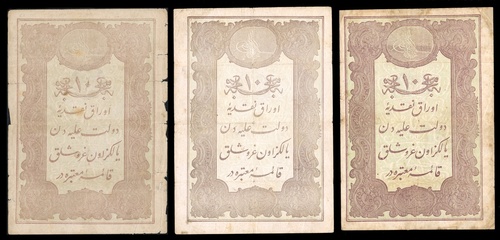 ١٠
اوراق نقدیه
دولت علیه دن
یالکز اون غروشلق
قائمه معتبره در
١٠
اوراق نقدیه
دولت علیه دن
یالکز اون غروشلق
قائمه معتبره در
١٠
اوراق نقدیه
دولت علیه دن
یالکز اون غروشلق
قائمه معتبره در